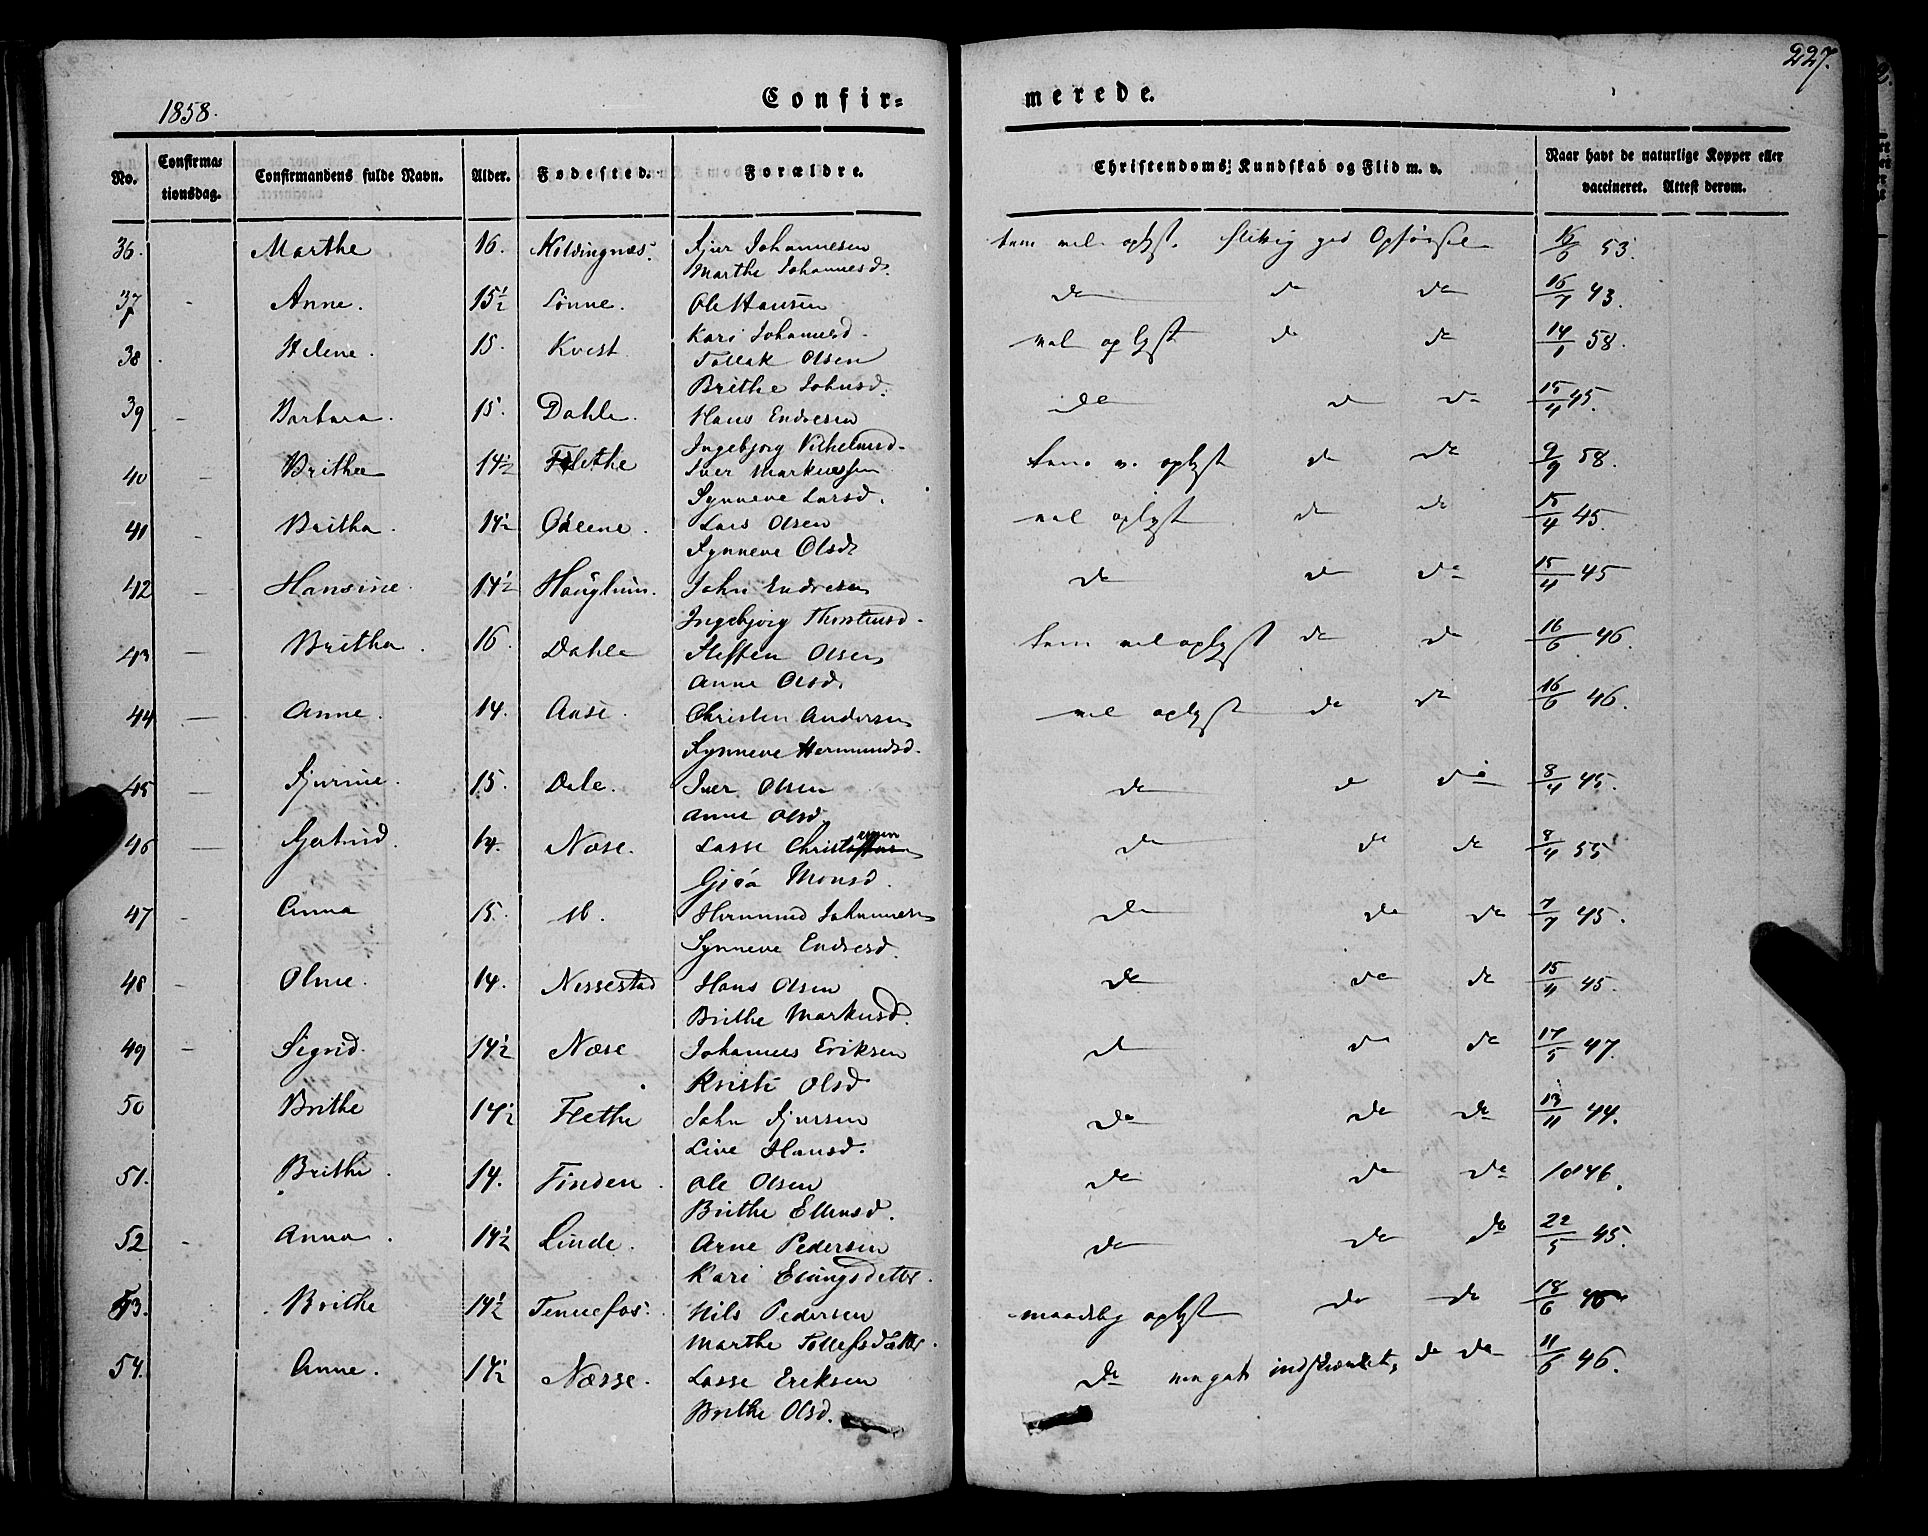 227.
1858.
Confir=
merede.
No. Confirma=tionsdag. Confirmandens fulde Navn. Alder. Fødested. Forældre. Christendoms Kundskab og Flid m. v. Naar havt de naturlige Kopper eller vaccineret. Attest derom.
36. Marthe 16. Koldingnæs. Sjur Johannesen tem. vel oplyst. flittig god Opførsel 16/6 53.
Marthe Johannesd.
37 - Anne. 15½ Lønne. Ole Hansen do do do 16/7 43.
Kari Johannesd.
38. Helene. 15. Kvist Tollak Olsen vel oplyst do do 14/1 58.
Brithe Johnsd.
39 - Barbara. 15. Dahle. Hans Endresen do do do 15/4 45.
Ingebjorg Vilhelmsd.
40 - Brithe 14½ Flethe Iver Markussen tem. v. oplyst do do 9/9 58.
Synneve Larsd.
41 - Britha. 14½ Lars Olsen vel oplyst do do 15/4 45.
Synneve Olsd.
42 - Hansine. 14½ Hauglum. John Endresen do do do 15/4 45
Ingebjorg Thorstensd.
43 - Britha. 16. Dahle Steffen Olsen tem vel oplyst do do 16/6 46.
Anne Olsd.
44 - Anne. 14. Aase. Christen Andersen vel oplyst do do 16/6 46.
Synneve Hermundsd.
45 - Sjurine. 15. Dale. Iver Olsen do do do 8/4 45.
Anne Olsd.
46 - Gjertrud. 14. Nase. Lasse Christensen do do do 8/4 55
Gjøa Monsd.
47 - Anna 15. Hermund Johannesen do do do 7/7 45.
Synneve Endresd.
48 - Oline. 14. Nessestad Hans Olsen do do do 15/4 45.
Brithe Markusd.
49 - Sigrid. 14½ Næse Johannes Eriksen do do do 17/5 47.
Kristi Olsd
50 Brithe 14½ Flethe John Sjursen do do do 13/11 44.
Live Hansd.
51. Brithe. 14. Finden. Ole Olsen do do do 1846.
Brithe Ellensd.
52 - Anna. 14½ Linde. Arne Pedersen do do do 22/5 45.
Kari Elingsdetter.
53. Brithe 14½ Tennefos. Nils Pedersen maadelig oplyst do do 18/6 45
Marthe Tollefsdatter.
54. Anne. 14½ Næsse. Lasse Eriksen do noget indskrænket, do do 11/6 46.
Brithe Olsd.